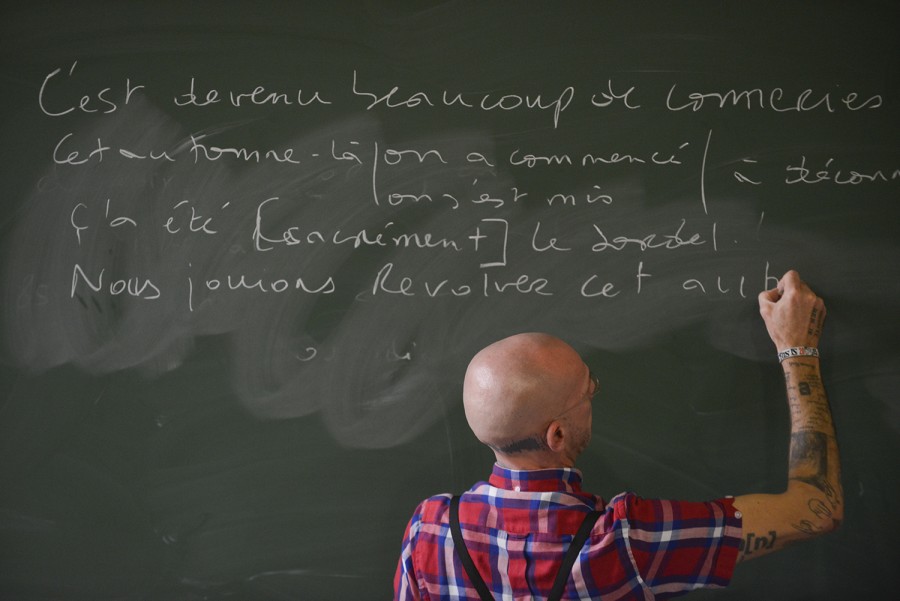 C'est devenu beaucoup de conneries
Cet automne-là on a commencé à déconn
on s'est mis
Ç'a été [sacrément] le bordel.
Nous jouions Revolver cet aut
[n]